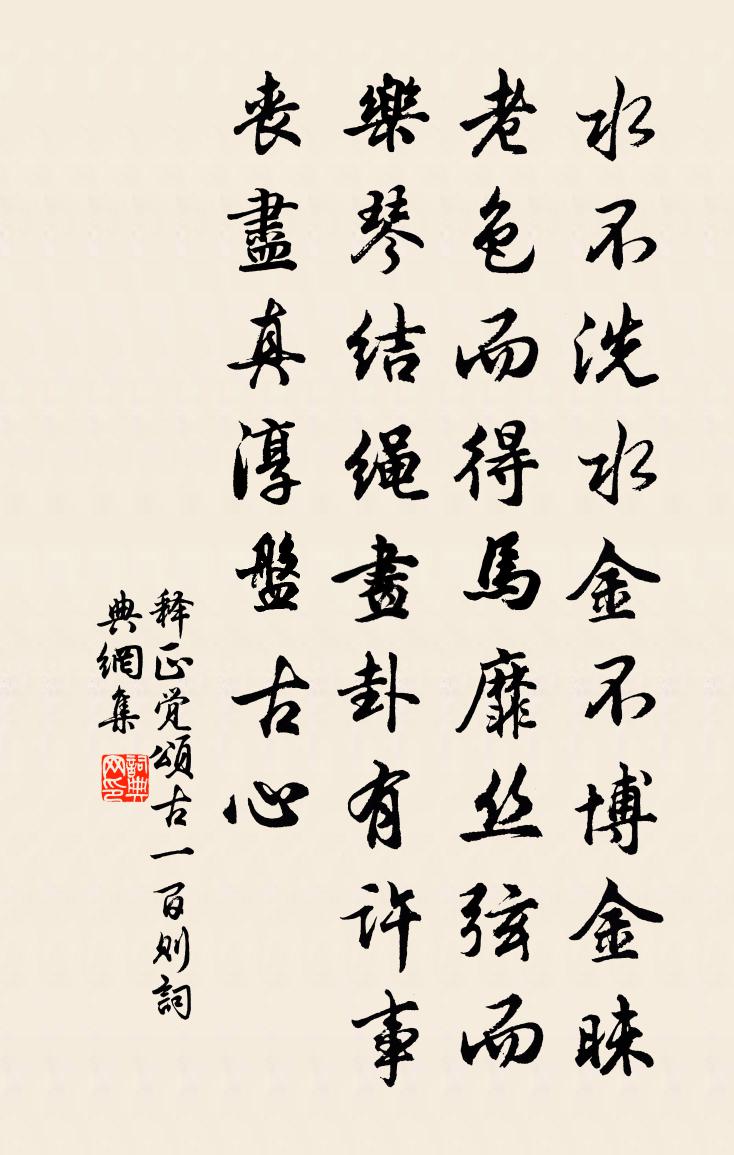 水不洗水金不博金昧
老色而得馬靡丝弦而
樂琴结绳畫卦有许事
丧盡真淳盤古心
释正觉頌古一百则詞
典網集
詞典网印